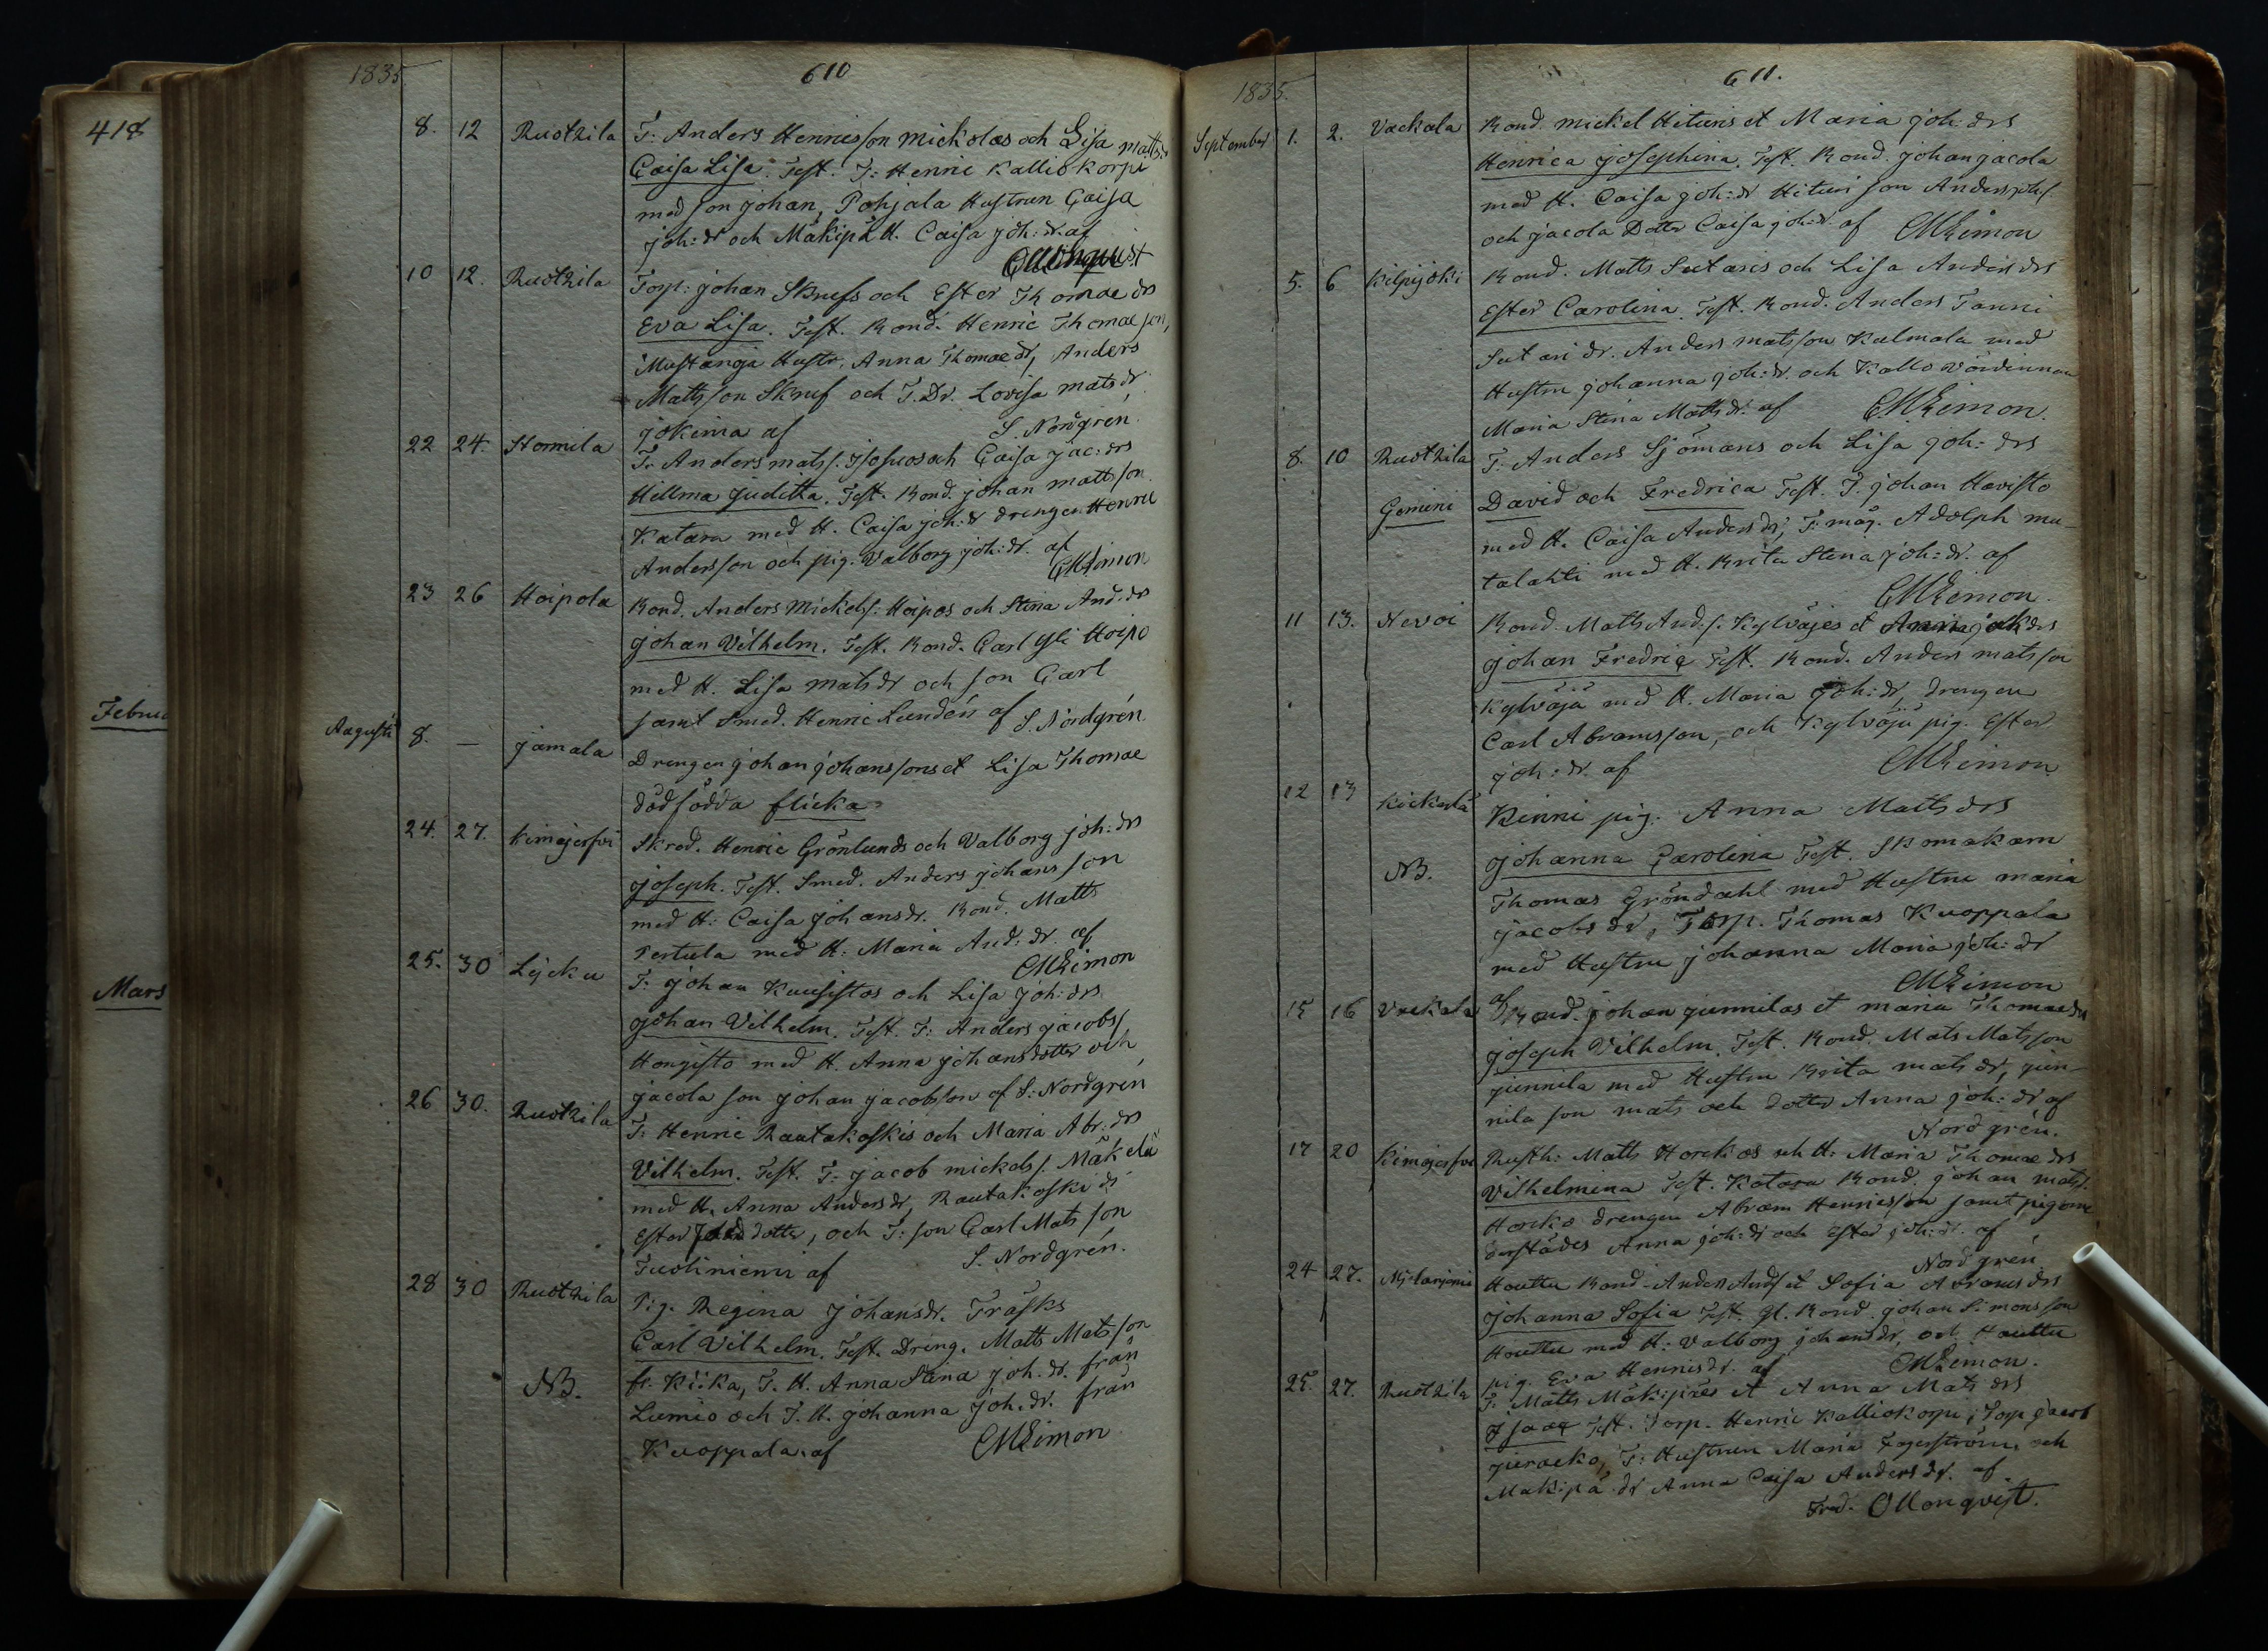 418
Februa
Mars
1835
610
8. 12 Ruotzila T: Anders Henricsson Mickolas och Lisa Mattsdr
Caisa Lisa. Test. T: Henric Kalliokorpi
med son Johan, Pohjala Hustrun Caisa
Joh: dr och Mäkipä H. Caisa Joh: dr. af
10 12. Ruotzila Torp: Johan Skrufs och Ester Thomae drs
Eva Lisa. Test. Bond. Henric Thomae son,
Mustanoja Hustr. Anna Thomae dr, Anders
Mattsson Skruf och T. Dr. Lovisa Mats dr
Jokima af S. Nordgrén.
22 24. Hommila T. Anders Mats s. och Caisa Jac: drs
Hillma Juditha. Test. Bond. Johan Mattsson
Katara med H. Caisa Joh: dr drengen Henric
Andersson och pig. Valborg Joh: dr. af
CMLimon
23 26 Hoipola Bond. Anders Mickels s: Hoipos och Stina And: drs
Johan Vilhelm. Test. Bond. Carl Yli Hoipo
med H. Lisa Mats dr och son Carl
samt Smed. Henric Lundén af S. Nordgrén
Augusti 8. — Jamala Drengen Johan Johanssons et Lisa Thomae
dödfödda flicka
24. 27. Kimajerfvi Skred. Henric Grönlunds och Valborg Joh: drs
Joseph. Test. Smed. Anders Johansson
med H: Caisa Johansdr. Bond. Matts
Pertula med H: Maria And: dr. af
CMLimon
25. 30 Lycku T: Johan Kuusistos och Lisa Joh: drs
Johan Vilhelm. Test. T: Anders Jacobs s
Hongisto med H. Anna Johansdotter och
Jacola son Johan Jacobsson af S: Nordgrén
26 30. Ruotzila T: Henric Rautakoskis och Maria Abr: drs
Vilhelm. Test. T: Jacob Mickels s. Mäkelä
med H. Anna Andersdr, Rautakoski dr
Ester dotter, och T: son Carl Matsson
Tuoliniemi af S. Nordgrén.
28 30 Ruotzila Pig. Regina Johansdr. Träsks
Carl Vilhelm. Test. Dreng. Matts Matsson
NB. fr. Kiika, T. H. Anna Stina Joh. dr. från
Lumio och T. H. Johanna Joh. dr. från
Kuoppala af CMLimon
1835.
611.
September 1. 2. Vackala Bond. Mickel Hituris et Maria Joh: drs
Henrica Josephina. Test. Bond. Johan Jacola
med H. Caisa Joh: dr Hituri son Anders
och Jacola Dotter Caisa Joh: dr. af CMLimon
5. 6 Kilpijoki Bond. Matts Sutaris och Lisa Anders drs
Ester Carolina. Test. Bond. Anders Tanni
Sutari dr. Anders Matsson Kulmala med
Hustru Johanna Joh: dr. och Kallo värdinnan
Maria Stina Matts dr. af CMLimon.
8. 10 Ruotzila T: Anders Sjömans och Lisa Joh: drs
Gemini David och Fredrica Test. T. Johan Havisto
med H. Caisa Anders dr, T: måg. Adolph Mu-
talahti med H. Brita Stena Joh: dr. af
CMLimon.
11 13. Nevoi Bond. Matts And. s. Kylväjes et drs
Johan Fredric Test. Bond. Anders Matsson
Kylväjä med H. Maria Joh: dr, drengen
Carl Abramsson, och Kylväjä pig. Ester
Joh: dr. af CMLimon
12 13 Kinni pig. Anna Matts drs
NB. Johanna Carolina Test. Skomakarn
Thomas Gröndahl med Hustru Maria
Jacobs dr, Torp. Thomas Kuoppala
med Hustru Johanna Maria Joh: dr
af CMLimon
15 16 Vackala Bond. Johan Junnilas et Maria Thomae drs
Joseph Vilhelm. Test. Bond. Mats Matsson
Junnila med Hustru Brita Mats dr, Jun-
nila son Mats och dotter Anna Joh: dr af
Nordgrén.
17 20 Kimajerfvi Rusth: Matts Horckos och H: Maria Thomae drs
Vilhelmina Test. Katara Bond. Johan Mats s.
Horcko drengen Abram Henricsson samt pigorne
derstädes Anna Joh: dr och Ester Joh: dr. af
Nordgrén.
24 27. Houttu Bond. Anders And s et Sofia Abrams drs
Johanna Sofia Test. Gl. Bond. Johan Simonsson
Houttu med H: Valborg Johansdr, och Houttu
pig. Eva Henricsdr. af CMLimon.
25. 27. Ruotzila T. Matts Mäkipäes et Anna Mats drs
Isaac Test. Torp. Henric Kalliokorpi, Torp Jacob
T: Hustrun Maria Fagerström, och
Mäkipä dr Anna Caisa Anders dr. af
Fred. Ollonqvist.